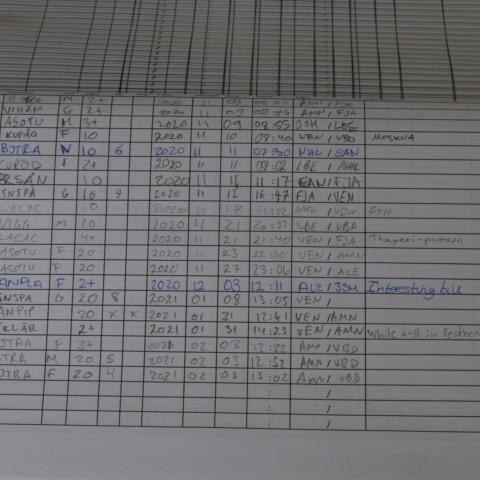 M 2+ 2020 11 09 AMN / FJA
G 2+ 2020 11 09 AMN / FJA
ASOTU M 3+ 2020 11 09 08:55 JSH / LBE
KUPAG F 10 2020 11 10 08:40 VEN / VBD MOSKVA
BJTRA N 10 6 2020 11 11 07:30 NHL / EAN
2+ 2020 11 11 LBE / NHL
BRSÅN 10 2020 11 11:17 EAN / FJA
SNSPA G 10 9 2020 11 12 16:47 FJA / VEN
LACAC 10 2020 11 18 NHL / VEN
VIGG M 10 2020 11 21 20:37 LBE / VBD
LACAC 4+ 2020 11 21 21:40 VEN / FJA Thayeri-pattern
ASOTU F 20 2020 11 23 22:30 VEN / AMN
ASOTU F 20 2020 11 27 23:06 VEN / ALE
F 2+ 2020 12 03 12:11 ALE / JSH Interesting bill
SNSPA G 20 8 2021 01 08 13:05 VEN /
ANPIP 20 X X 2021 01 31 12:41 VEN / AMN
2+ 2021 01 31 14:23 VEN / AMN White in feathers
JTRA F 3+ 2021 02 03 12:22 AMN / VBD
JTRA M 20 5 2021 02 03 12:52 AMN / VBD
JTRA F 20 4 2021 02 03 13:02 AMN / VBD
: /
: /
: /